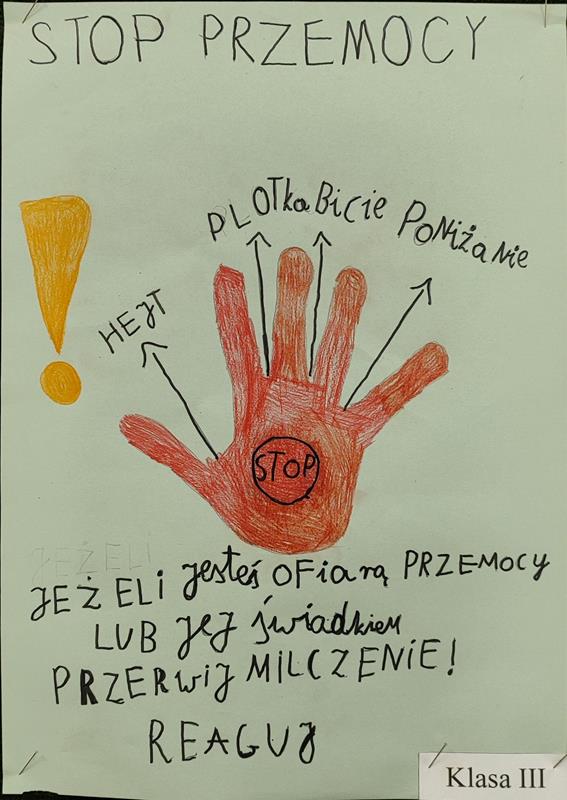 STOP PRZEMOCY
HEJT
PLOTKA
BICIE
PONIŻANIE
STOP
JEŻELI
JEŻELI jesteś OFiarą PRZEMOCY
LUB JEJ świadkiem
PRZERWIJ MILCZENIE!
REAGUJ
Klasa III